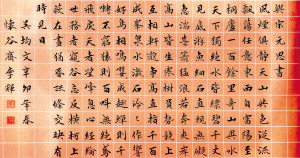 與宋元思書
風煙俱淨天山共色從流
飄蕩任意東西自富陽至
桐廬一百許里奇山異水
天下獨絕水皆縹碧千丈
見底游魚細石直視無礙
急湍甚箭猛浪若奔夾岸
高山皆生寒樹負勢競上
互相軒邈爭高直指千百
成峰泉水激石泠泠作響
好鳥相鳴嚶嚶成韻蟬則
千轉不窮猿則百叫無絕鳶
飛戾天者望峰息心經綸
世務者窺谷忘反橫柯上
蔽在晝猶昏疏條交映有
時見日
吳均文辛卯年春
懷谷齋李輝